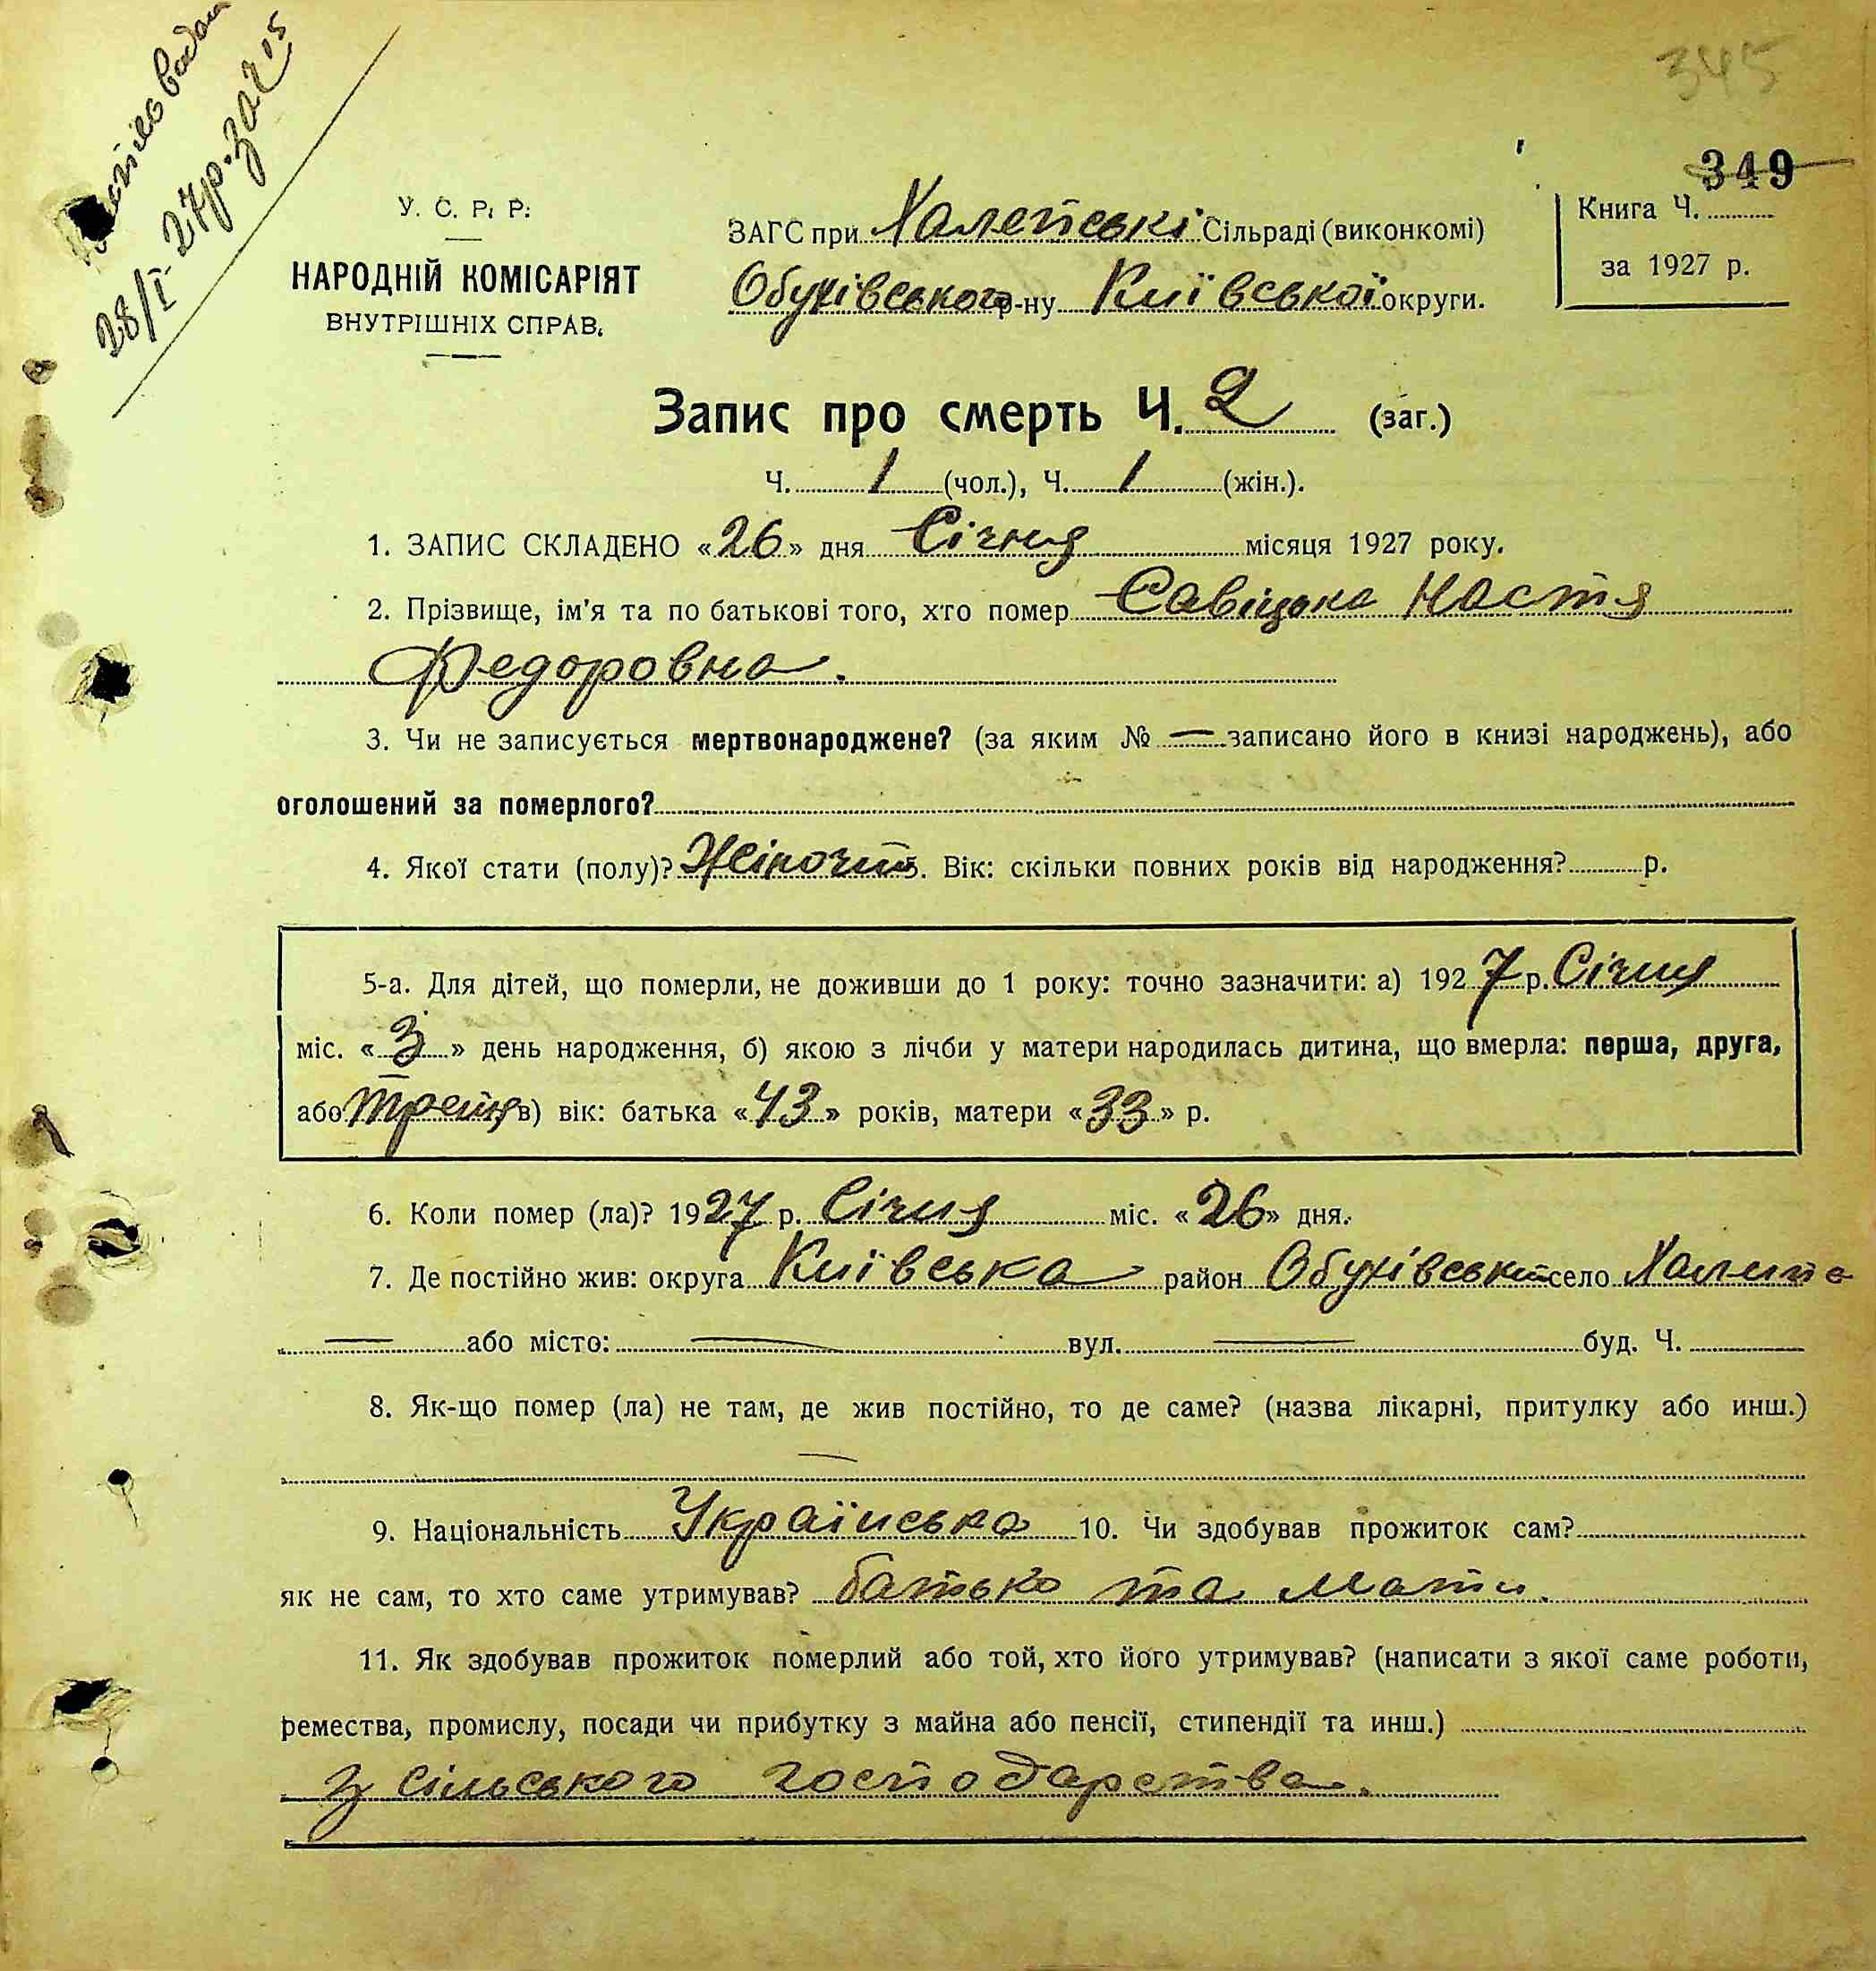 28/I-27р. за Ч 15
345
349
У. С. Р. Р.
НАРОДНІЙ КОМІСАРІЯТ
ВНУТРІШНІХ СПРАВ.
ЗАГС при Халепські Сільраді (виконкомі)
Обухівського р-ну Київської округи.
Книга Ч.
за 1927 р.
Запис про смерть Ч. 2 (заг.)
Ч. 1 (чол.), Ч. 1 (жін.).
1. ЗАПИС СКЛАДЕНО «26» дня Січня місяця 1927 року.
2. Прізвище, ім'я та по батькові того, хто помер Савіцька Настя
Федоровна.
3. Чи не записується мертвонароджене? (за яким № — записано його в книзі народжень), або
оголошений за померлого?
4. Якої стати (полу)? Жіночий 5. Вік: скільки повних років від народження? р.
5-а. Для дітей, що померли, не доживши до 1 року: точно зазначити: а) 1927 р. Січня
міс. «3» день народження, б) якою з лічби у матери народилась дитина, що вмерла: перша, друга,
або Третя в) вік: батька «43» років, матери «33» р.
6. Коли помер (ла)? 1927 р. Січня міс. «26» дня.
7. Де постійно жив: округа Київська район Обухівський село Халепа
— або місто: — вул. — буд. Ч.
8. Як-що помер (ла) не там, де жив постійно, то де саме? (назва лікарні, притулку або инш.)
—
9. Національність Українська 10. Чи здобував прожиток сам?
як не сам, то хто саме утримував? батько та мати.
11. Як здобував прожиток померлий або той, хто його утримував? (написати з якої саме роботи,
ремества, промислу, посади чи прибутку з майна або пенсії, стипендії та инш.)
З сільського господарства.